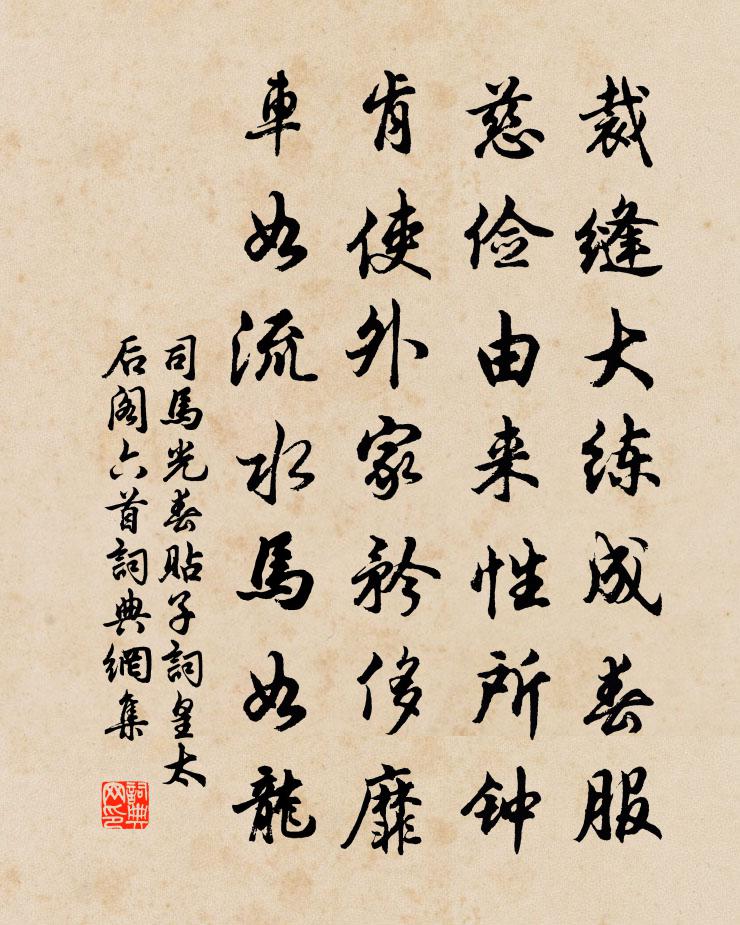 裁缝大练成春服
慈俭由来性所钟
肯使外家矜侈靡
車如流水馬如龍
司馬光春貼子詞皇太
后阁六首詞典網集
詞典网印